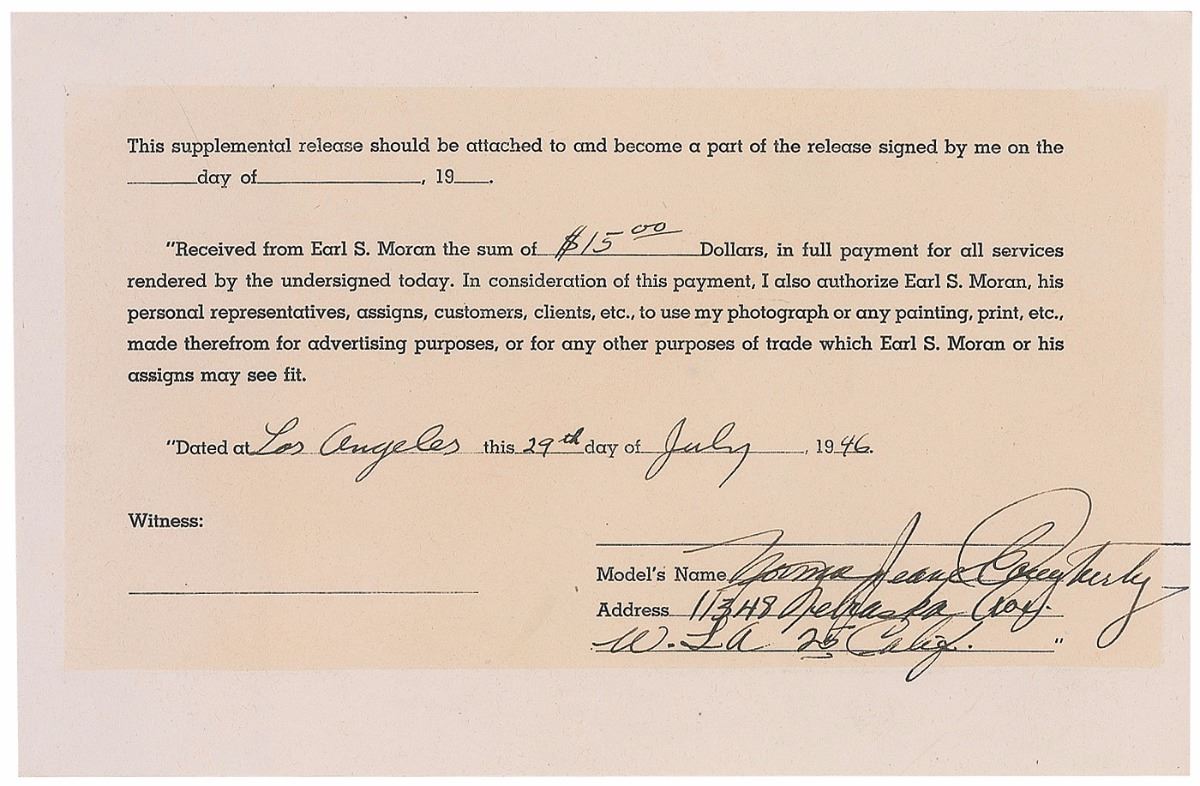 This supplemental release should be attached to and become a part of the release signed by me on the
______day of______________, 19___.
"Received from Earl S. Moran the sum of $15 00 Dollars, in full payment for all services
rendered by the undersigned today. In consideration of this payment, I also authorize Earl S. Moran, his
personal representatives, assigns, customers, clients, etc., to use my photograph or any painting, print, etc.,
made therefrom for advertising purposes, or for any other purposes of trade which Earl S. Moran or his
assigns may see fit.
"Dated at Los Angeles this 29th day of July, 1946.
Witness:
Model's Name Norma Jeane Dougherty
Address 11348 Nebraska Ave.
W. LA 25 Calif. "